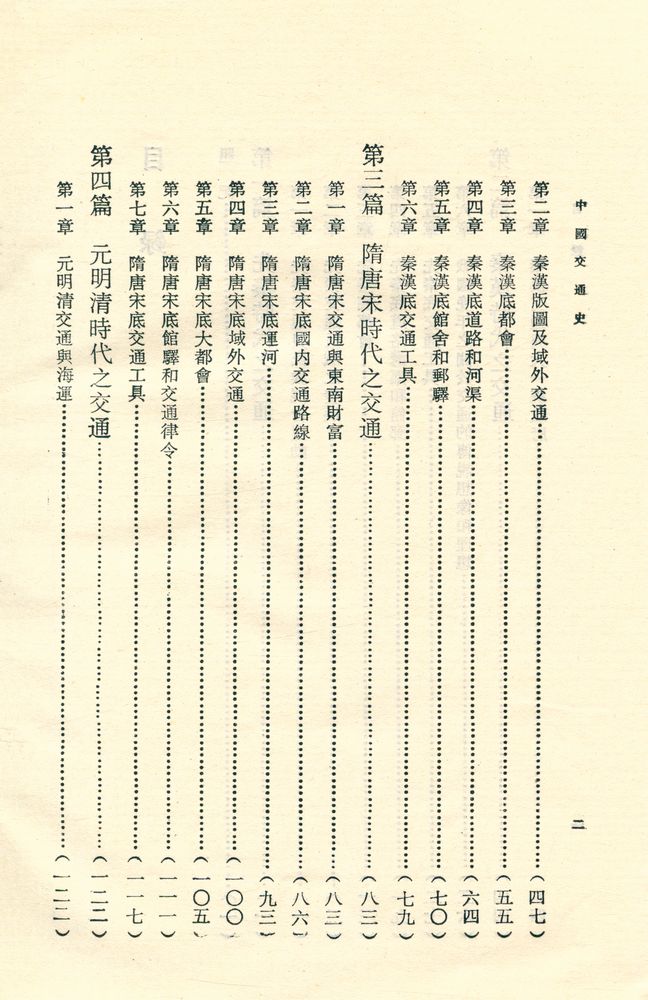 中國交通史
二
第二章 秦漢版圖及域外交通……(四七)
第三章 秦漢底都會……(五五)
第四章 秦漢底道路和河渠……(六四)
第五章 秦漢底館舍和郵驛……(七〇)
第六章 秦漢底交通工具……(七九)
第三篇 隋唐宋時代之交通……(八三)
第一章 隋唐宋交通與東南財富……(八三)
第二章 隋唐宋底國內交通路線……(八六)
第三章 隋唐宋底運河……(九三)
第四章 隋唐宋底域外交通……(一〇〇)
第五章 隋唐宋底大都會……(一〇五)
第六章 隋唐宋底館驛和交通律令……(一一一)
第七章 隋唐宋底交通工具……(一一七)
第四篇 元明清時代之交通……(一二二)
第一章 元明清交通與海運……(一二二)